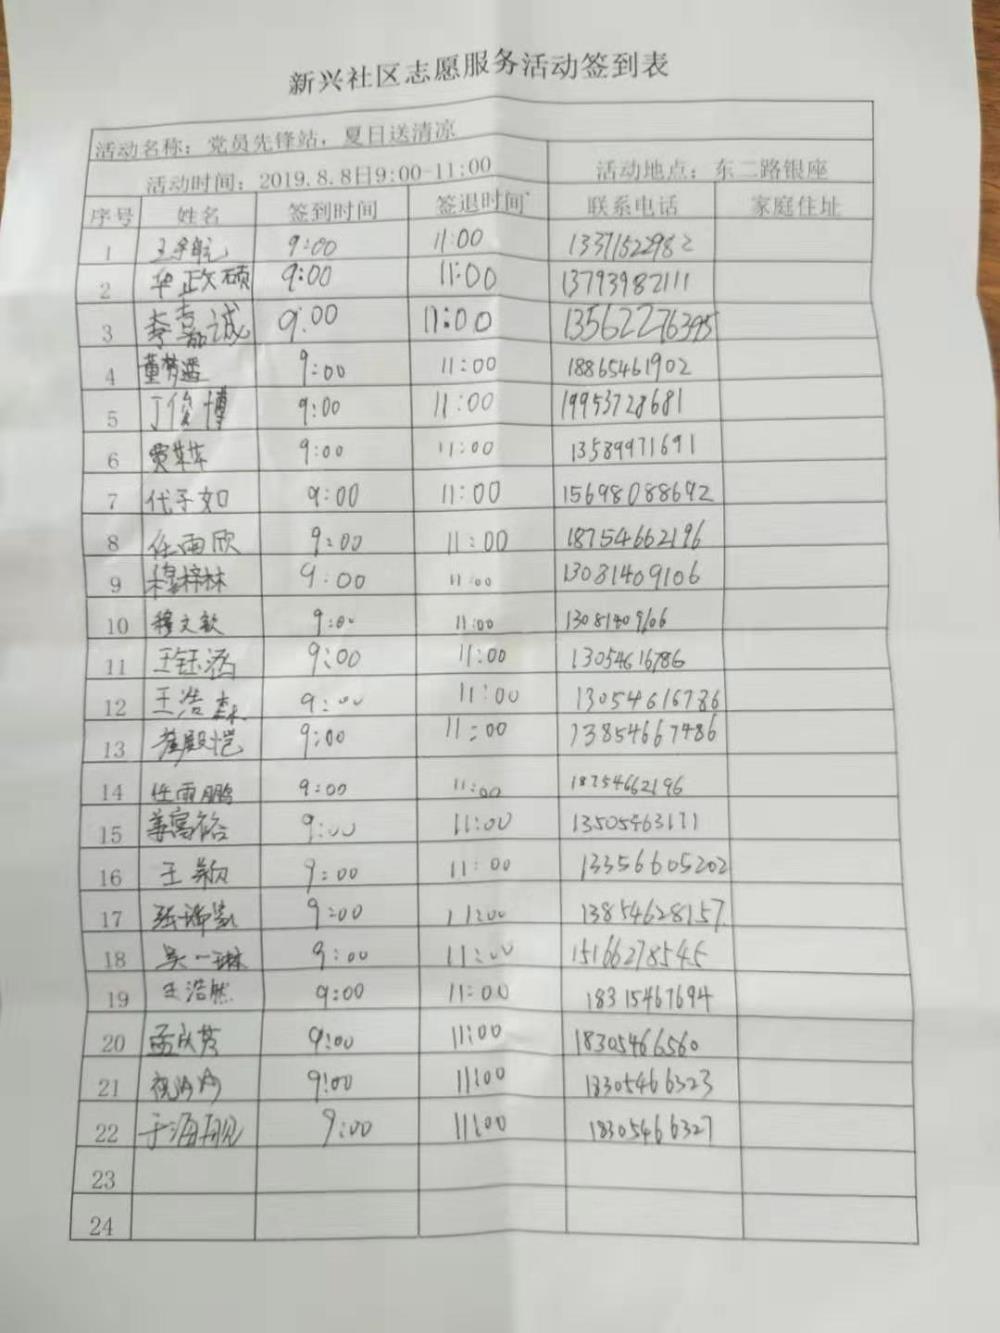 新兴社区志愿服务活动签到表
活动名称：党员先锋站，夏日送清凉
活动时间：2019.8.8日9:00-11:00 活动地点：东二路银座
序号 姓名 签到时间 签退时间 联系电话 家庭住址
1 9:00 11:00 13371522982
2 华政硕 9:00 11:00 13793982111
3 李嘉诚 9:00 11:00 13562276395
4 董梦遥 9:00 11:00 18865461902
5 丁俊博 9:00 11:00 19953728681
6 9:00 11:00 13589971691
7 代子如 9:00 11:00 15698088692
8 任雨欣 9:00 11:00 18754662196
9 穆梓林 9:00 11:00 13081409106
10 穆文歆 9:00 11:00 13081409106
11 王钰涵 9:00 11:00 13054616786
12 王浩森 9:00 11:00 13054616786
13 9:00 11:00 13854667486
14 任雨鹏 9:00 11:00 18754662196
15 姜富裕 9:00 11:00 13505463171
16 王颖 9:00 11:00 13356605202
17 9:00 11:00 13854628157
18 吴一琳 9:00 11:00 15166278545
19 王浩然 9:00 11:00 18315467694
20 孟欣芳 9:00 11:00 18305466560
21 9:00 11:00 18305466323
22 于海 9:00 11:00 18305466327
23
24